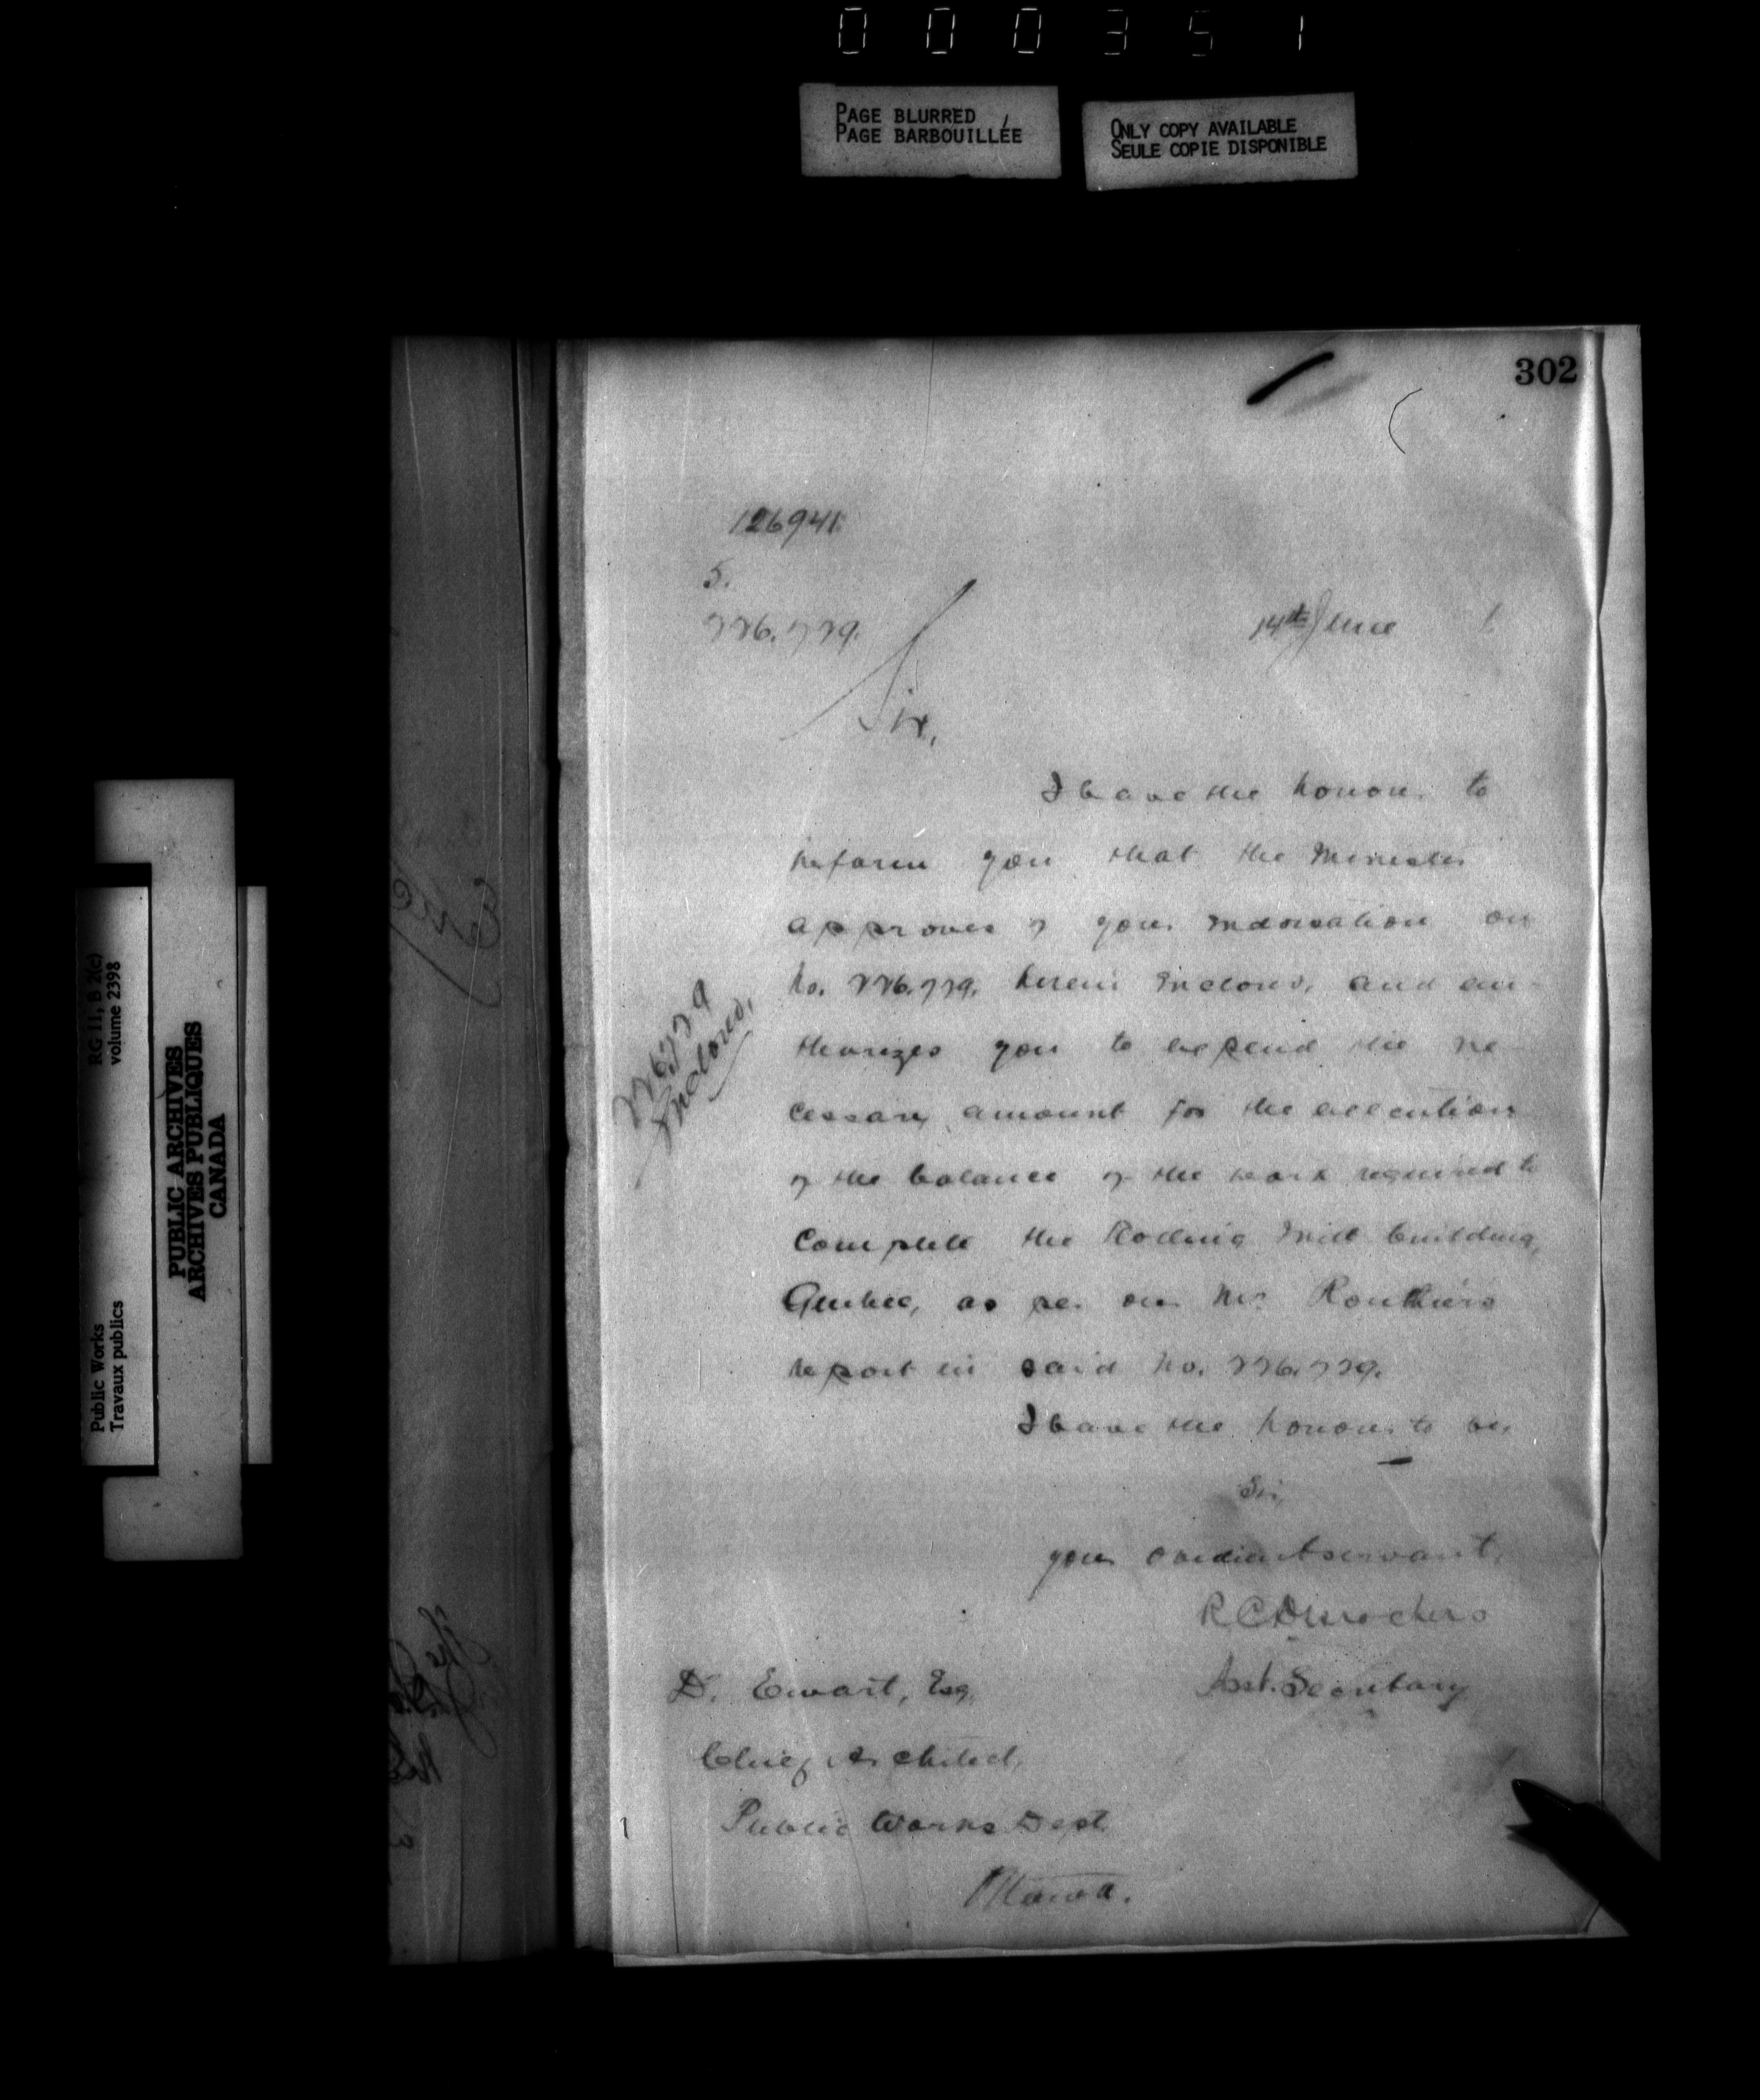 000351
PAGE BLURRED
PAGE BARBOUILLÉE
ONLY COPY AVAILABLE
SEULE COPIE DISPONIBLE
302
126941
5.
226.779.
14th June
Sir,
I have the honour to
inform you that the Minister
approves of your indorsation on
No. 226.779. herein inclosed, and au-
thorizes you to expend the ne-
cessary amount for the execution
of the balance of the work required to
complete the Rolling Mill building,
Quebec, as per on Mr. Routhier's
report in said No. 226.779.
I have the honour to be,
Sir,
your obedient servant,
R C Desrochers
Asst. Secretary
D. Ewart, Esq,
Chief Architect,
Public Works Dept.
Ottawa.
226.779
Inclosed.
Public Works
Travaux publics
RG 11, B 2(c)
volume 2398
PUBLIC ARCHIVES
ARCHIVES PUBLIQUES
CANADA